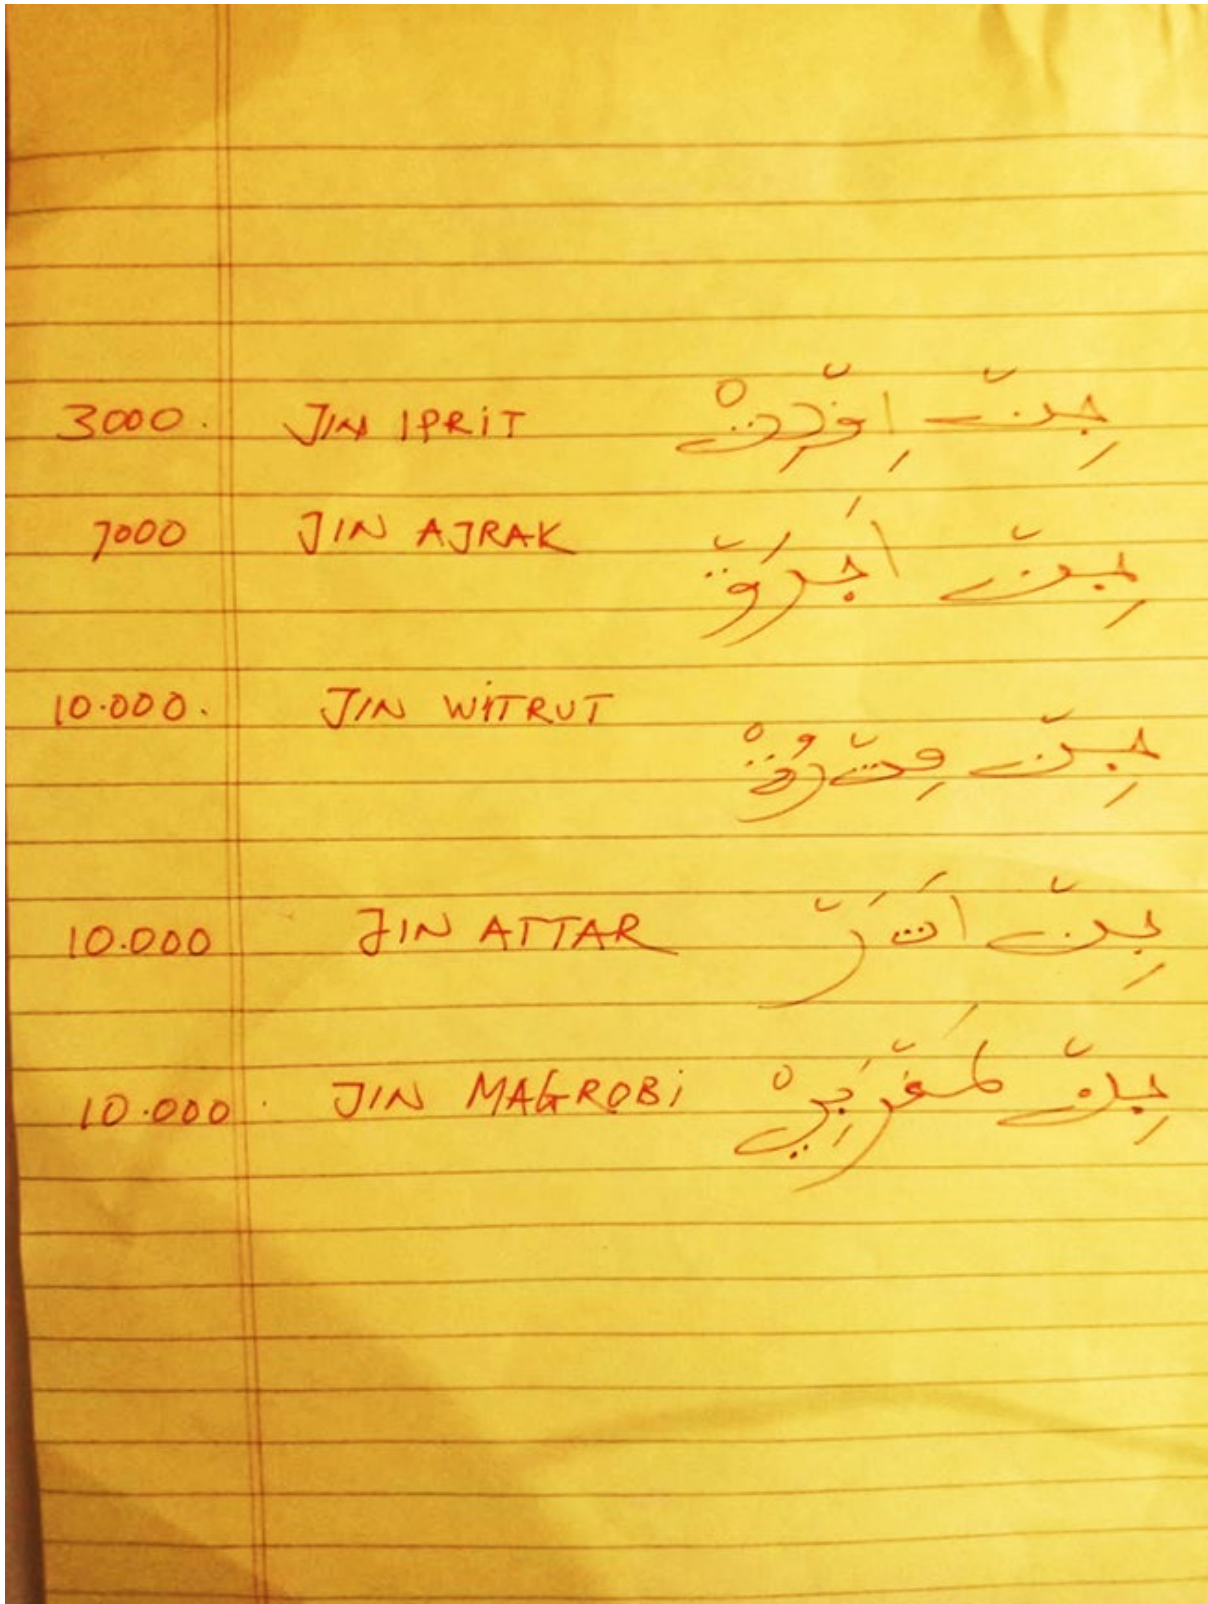 3000. JIN IPRIT جِنّ اِفرِت
7000 JIN AJRAK جِنّ اَجرَق
10.000. JIN WITRUT جِنّ
10.000 JIN ATTAR جِنّ
10.000. JIN MAGROBi جِنّ